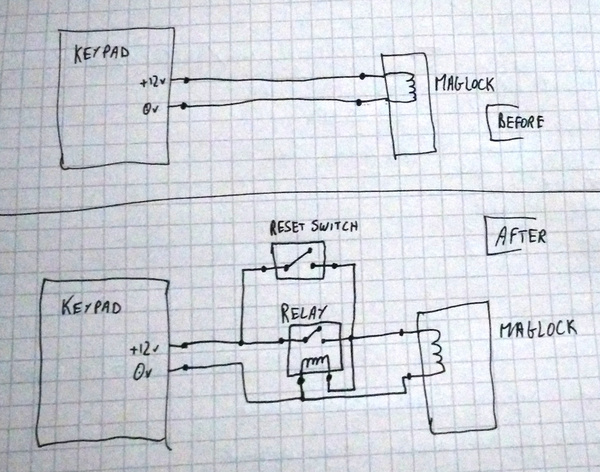 KEYPAD
+12v
0v
MAGLOCK
BEFORE
RESET SWITCH
AFTER
KEYPAD
RELAY
MAGLOCK
+12v
0v